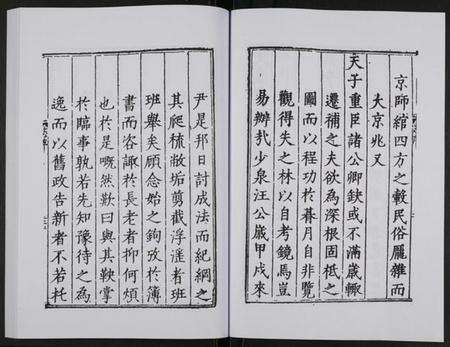 京師綰四方之轂民俗厖雜而
夫京兆又
天子重臣諸公卿缺或不滿歲輙
遷補之夫欲為深根固柢之
圖而以程功於暮月自非覽
觀得失之林以自考鏡焉豈
易辦㢤少泉汪公歲甲戌來
尹是邦日討成法而紀綱之
其爬梳敝垢剪截浮滛者班
班舉矣顧念始之鉤攷於簿
書而咨諏於長老者抑何煩
也於是嘅然歎曰與其鞅掌
於臨事孰若先知豫待之為
逸而以舊政告新者不若托